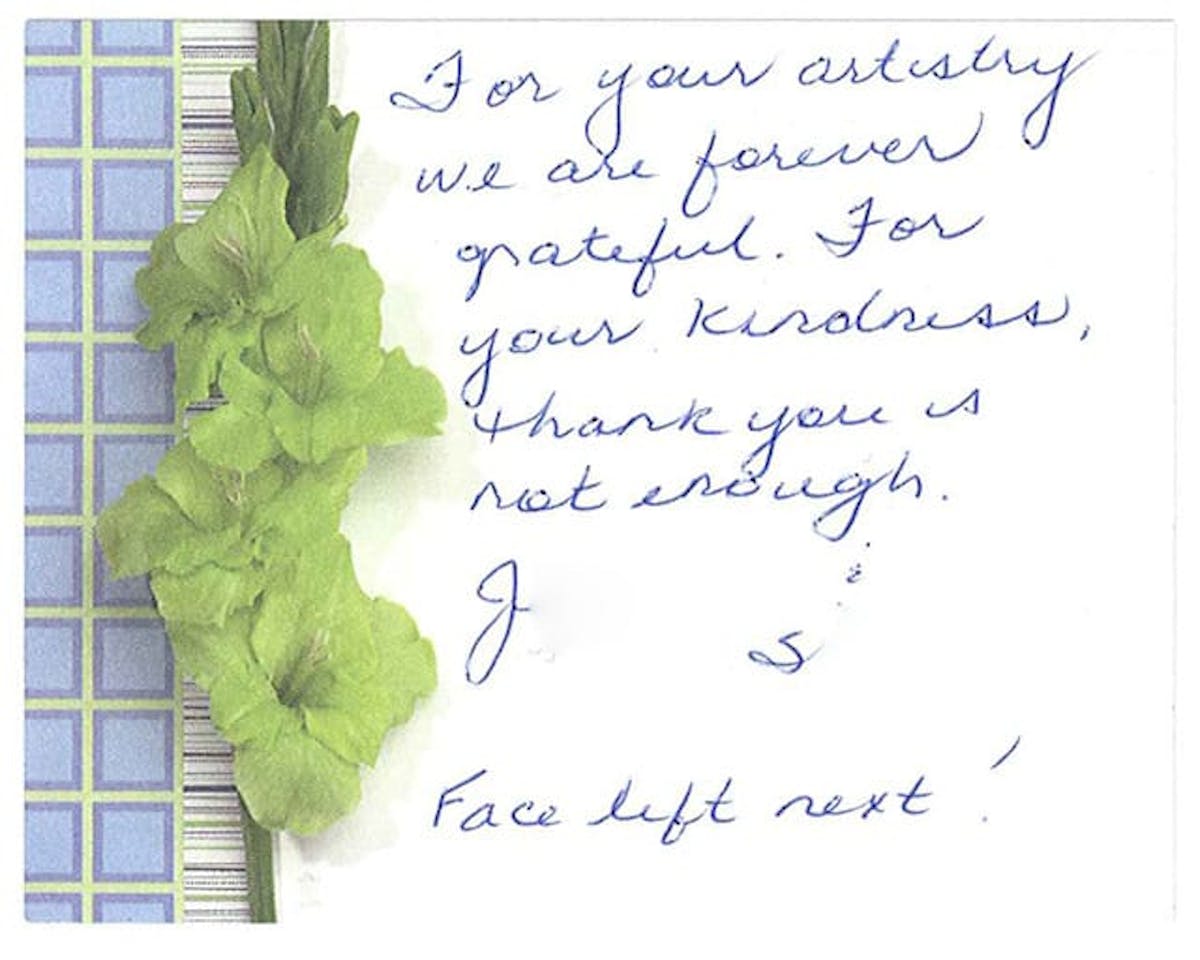 For your artistry
we are forever
grateful. For
your kindness,
thank you is
not enough.
J
S
Face left next!